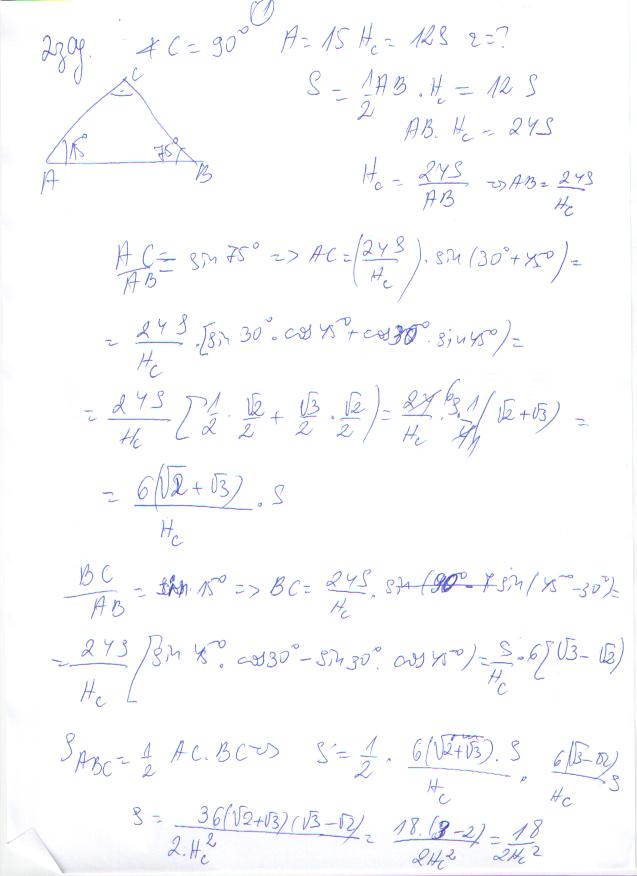 ①
2 зад. ∢ C = 90° A = 15 Hc = 12S r = ?
S = 1/2 AB . Hc = 12 S
AB. Hc = 24S
Hc = 24S/AB => AB = 24S/Hc
C
15° 75°
A B
AC/AB = sin 75° => AC = (24S/Hc) . sin (30° + 45°) =
= 24S/Hc . [sin 30° . cos 45° + cos 30° . sin 45°) =
= 24S/Hc [1/2 . √2/2 + √3/2 . √2/2) = 24/Hc 6 . S . 1/4 1 (√2 + √3) =
= 6(√2 + √3)/Hc . S
BC/AB = sin 15° => BC = 24S/Hc . sin (45° - 30°) =
= 24S/Hc [sin 45° . cos 30° - sin 30° . cos 45°) = S/Hc . 6 [√3 - √2)
S ABC = 1/2 AC . BC => S = 1/2 . 6(√2+√3) . S/Hc . 6(√3-√2)/Hc S
S = 36(√2+√3)(√3-√2)/2.Hc² = 18.(3-2)/2Hc² = 18/2Hc²